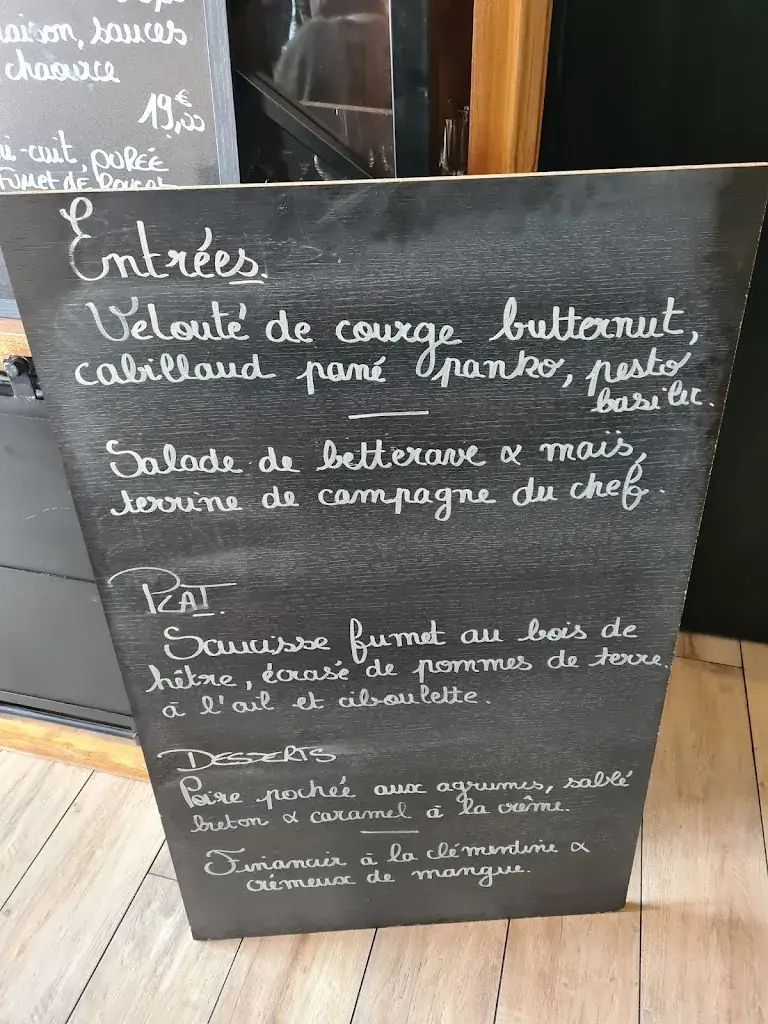 sauces
chaource
19,00€
PURÉE
FUMET DE
Entrées.
Velouté de courge butternut,
cabillaud pané panko, pesto
basilic.
Salade de betterave & maïs,
terrine de campagne du chef.
PLAT.
Saucisse fumet au bois de
hêtre, écrasé de pommes de terre
à l'ail et ciboulette.
DESSERTS
Poire pochée aux agrumes, sablé
breton & caramel à la crème.
Financier à la clémentine &
crémeux de mangue.